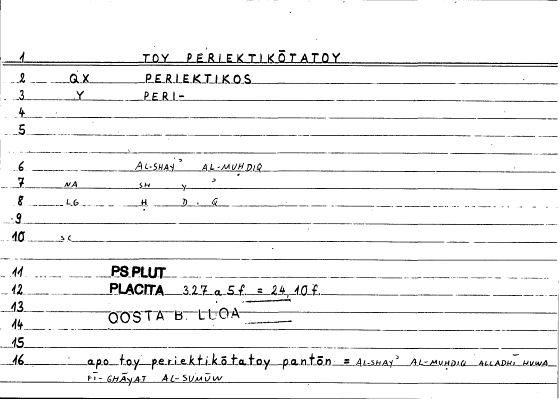 1 TOY PERIEKTIKŌTATOY
2 QX PERIEKTIKOS
3 Y PERI-
4
5
6 AL-SHAYʾ AL-MUḤDIQ
7 NA SH Y ʾ
8 LG Ḥ D . Q
9
10 SC
11 PS PLUT
12 PLACITA 327 a 5 f. = 24, 10 f.
13
14 OOSTA B. LLOA
15
16 apo toy periektikōtatoy pantōn = AL-SHAYʾ AL-MUḤDIQ ALLADHĪ HUWA
FĪ-GHĀYAT AL-SUMŪW